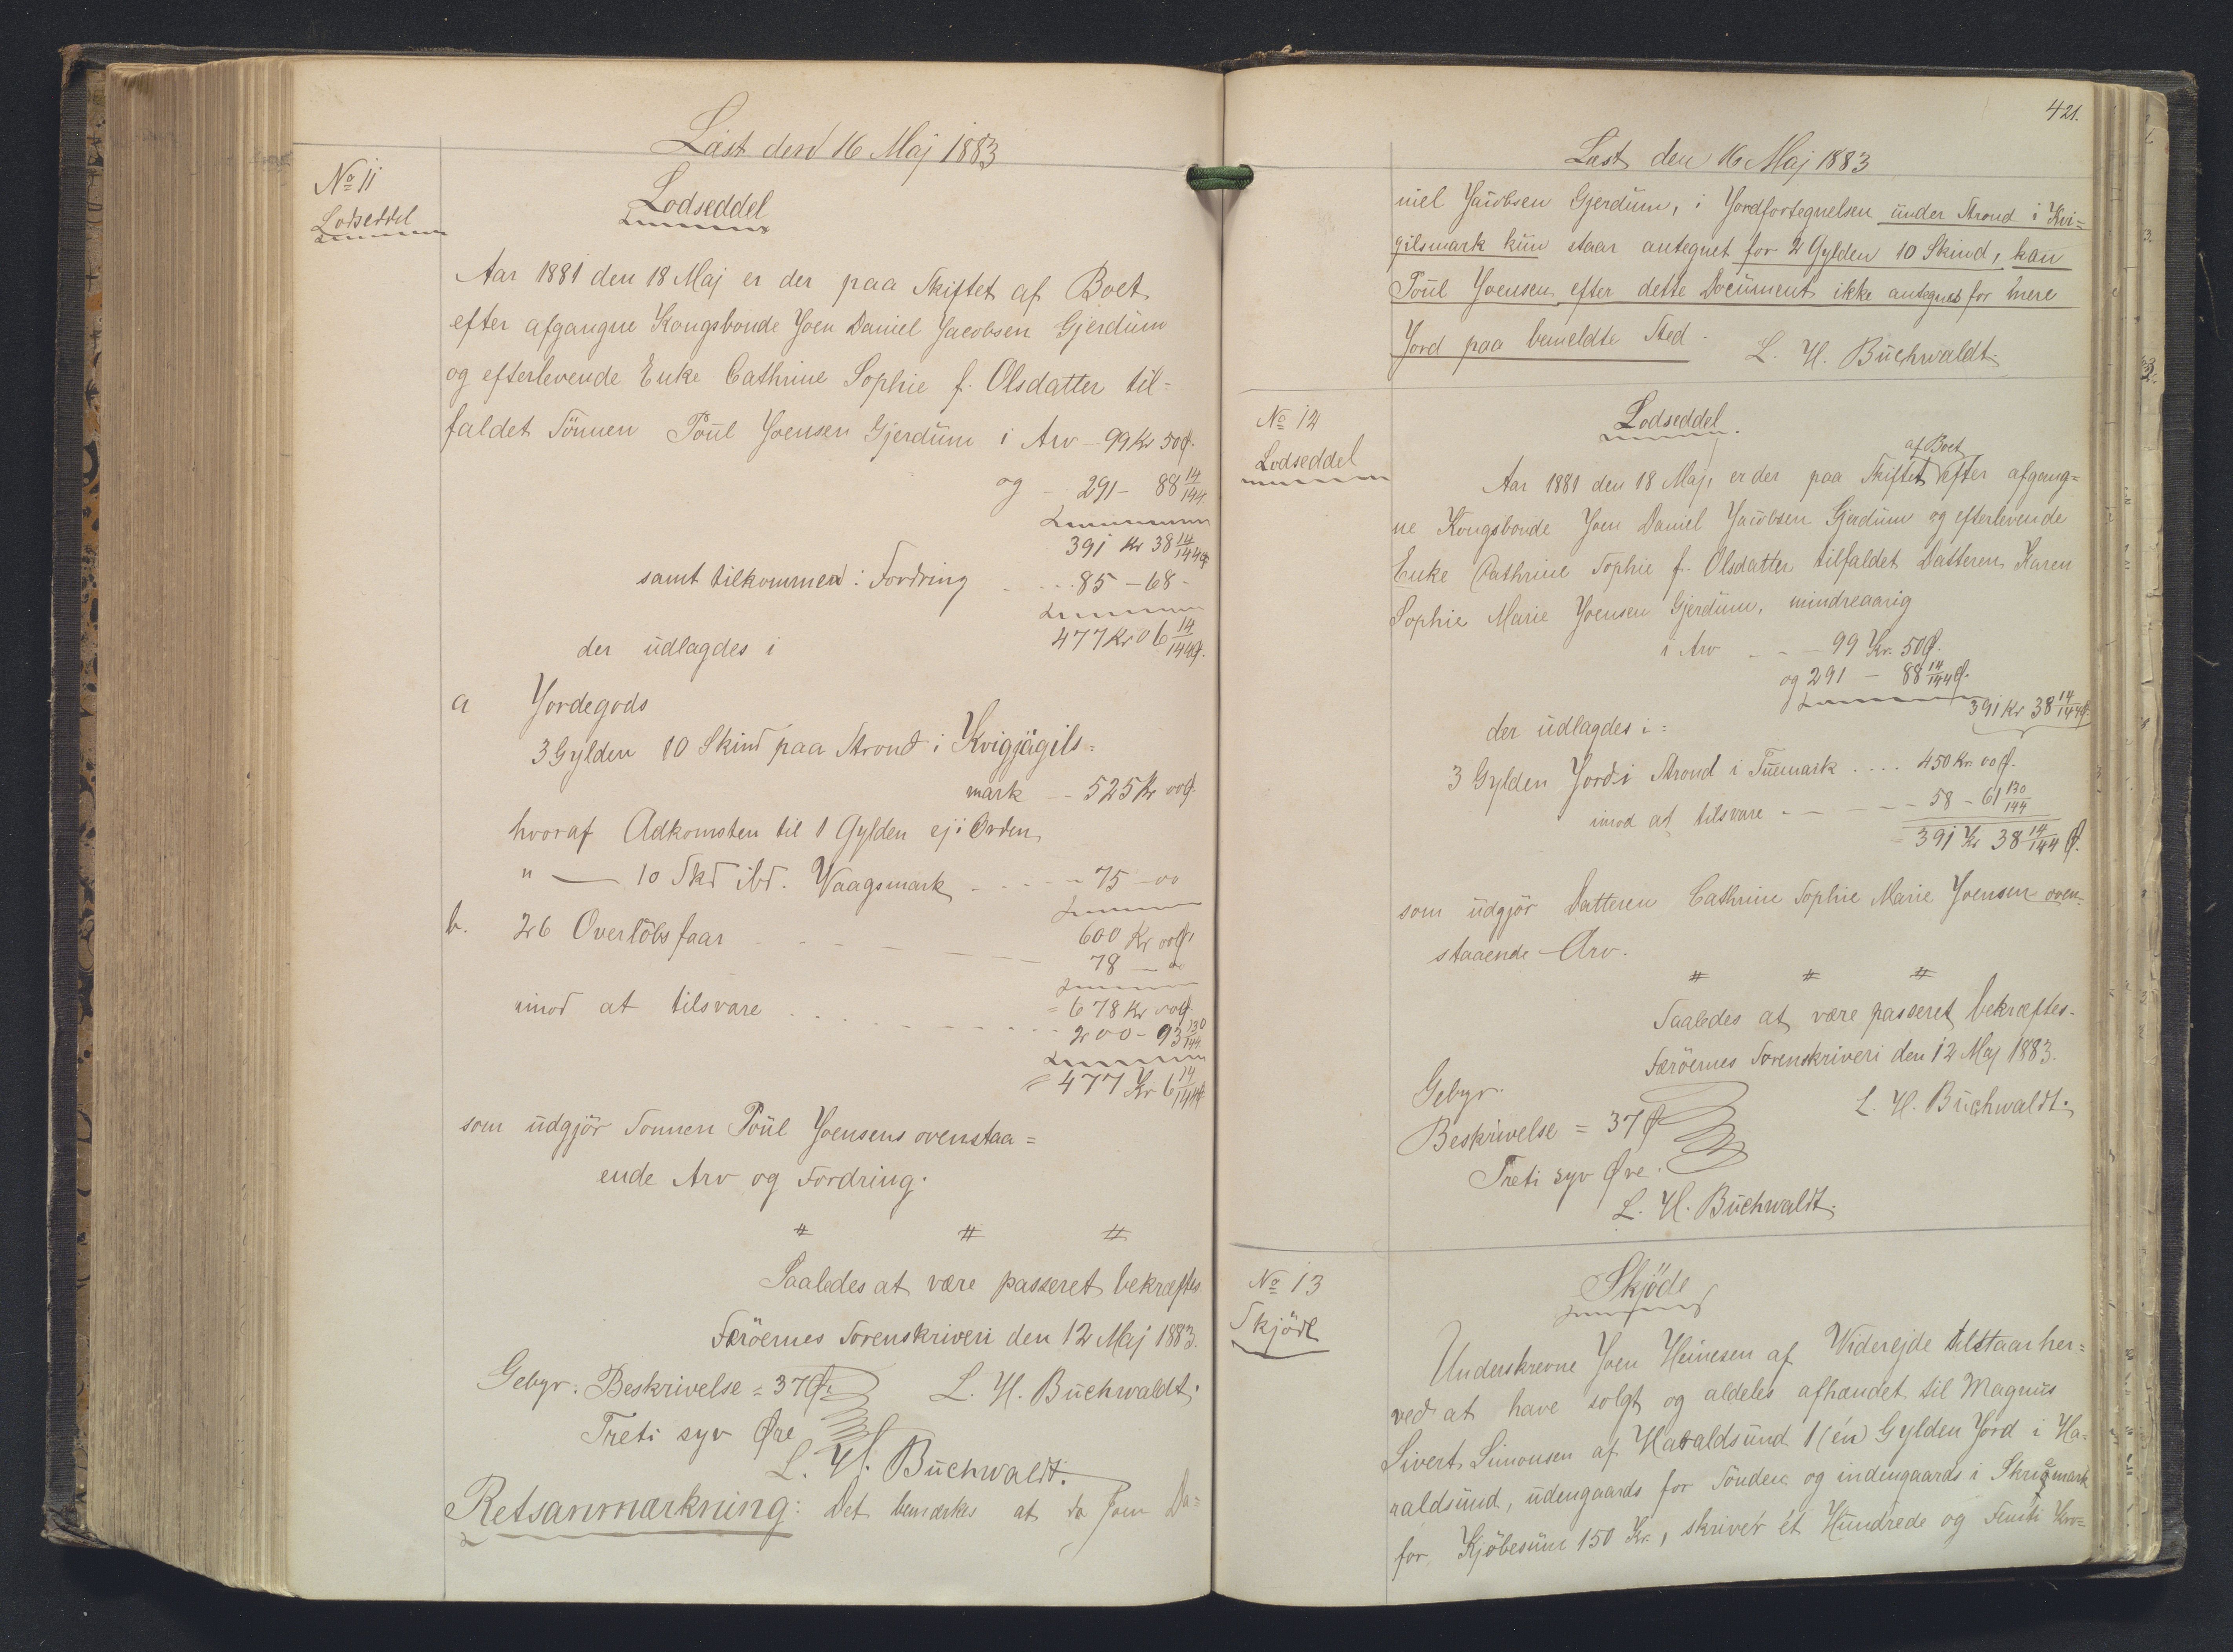 Læst den 16 Maj 1883
No 11
Lodseddel
Lodseddel
Aar 1881 den 18 Maj er der paa Skiftet af Boet
efter afgangne Kongsbonde Joen Daniel Jacobsen Gjerdum
og efterlevende Enke Cathrine Sophie f. Olsdatter til=
faldet Sönnen Poul Joensen Gjerdum i Arv - 99 Kr 50 Ø.
og - 291 - 88 14/144
391 Kr 38 14/144 Ø
samt tilkommen: Fordring . . . . 85 - 68 -
477 Kr 06 14/144 Ø.
der udlagdes i
a Jordegods
3 Gylden 10 Skind paa Strond i Kvigjägils=
mark - - 525 Kr 00 Ø.
hvoraf Adkomsten til 1 Gylden ej i Orden
" — 10 Skd ibd. Vaagsmark - - - - 75 - 00
600 Kr 00 Ø.
b. 26 Overlöbsfaar - - - - 78 - 00
= 678 Kr 00 Ø.
imod at tilsvare . . . . . . . . . 200 - 93 130/144
= 477 Kr 6 14/144 Ø
som udgjör Sonnen Poul Joensens ovenstaa=
ende Arv og Fordring.
# # #
Saaledes at være passeret bekræftes
Færöernes Sorenskriveri den 12 Maj 1883.
Gebyr: Beskrivelse = 37 Ø. L. H. Buchwaldt.
Treti syv Øre
L. H. Buchwaldt.
Retsanmærkning: Det bemærkes at da Joen Da=
421.
Læst den 16 Maj 1883
niel Jacobsen Gjerdum, i Jordfortegnelsen under Strond i Kvi=
gilsmark kun staar antegnet for 2 Gylden 10 Skind, kan
Poul Joensen efter dette Document ikke antegnes for mere
Jord paa bemeldte Sted.
L. H. Buchwaldt.
No 12
Lodseddel
Lodseddel.
af Boet
Aar 1881 den 18 Maj, er der paa Skiftet efter afgang=
ne Kongsbonde Joen Daniel Jacobsen Gjerdum og efterlevende
Enke Cathrine Sophie f. Olsdatter tilfaldet Datteren Karen
Sophie Marie Joensen Gjerdum, mindreaarig
i Arv - - - 99 Kr. 50 Ø.
og 291 - 88 14/144 Ø.
391 Kr 38 14/144 Ø.
der udlagdes i =
3 Gylden Jord i Strond i Tuemark . . . . 450 Kr 00 Ø.
imod at tilsvare - - - - - 58 - 61 130/144
= 391 Kr 38 14/144 Ø.
som udgjör Datteren Cathrine Sophie Marie Joensen oven=
staaende Arv.
# # #
Saaledes at være passeret bekræftes.
Færöernes Sorenskriveri den 12 Maj 1883.
Gebyr. L. H. Buchwaldt.
Beskrivelse = 37 Ø
Treti syv Øre.
L. H. Buchwaldt.
No 13
Skjöde
Skjöde
Underskrevne Joen Heinesen af Viderejde tilstaar her=
ved at have solgt og aldeles afhændet til Magnus
Sivert Simonsen af Haraldsund 1 (én) Gylden Jord i Ha=
raldsund, udengaards for Sönden og indengaards i mark
for Kjöbesum 150 Kr., skriver ét Hundrede og Femti Kro=